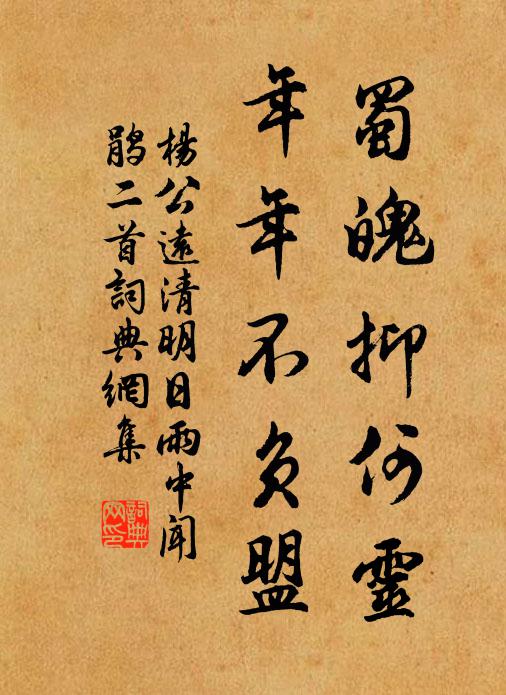 蜀魄抑何靈
年年不負盟
楊公遠清明日雨中聞
鵑二首詞典網集
詞典網印